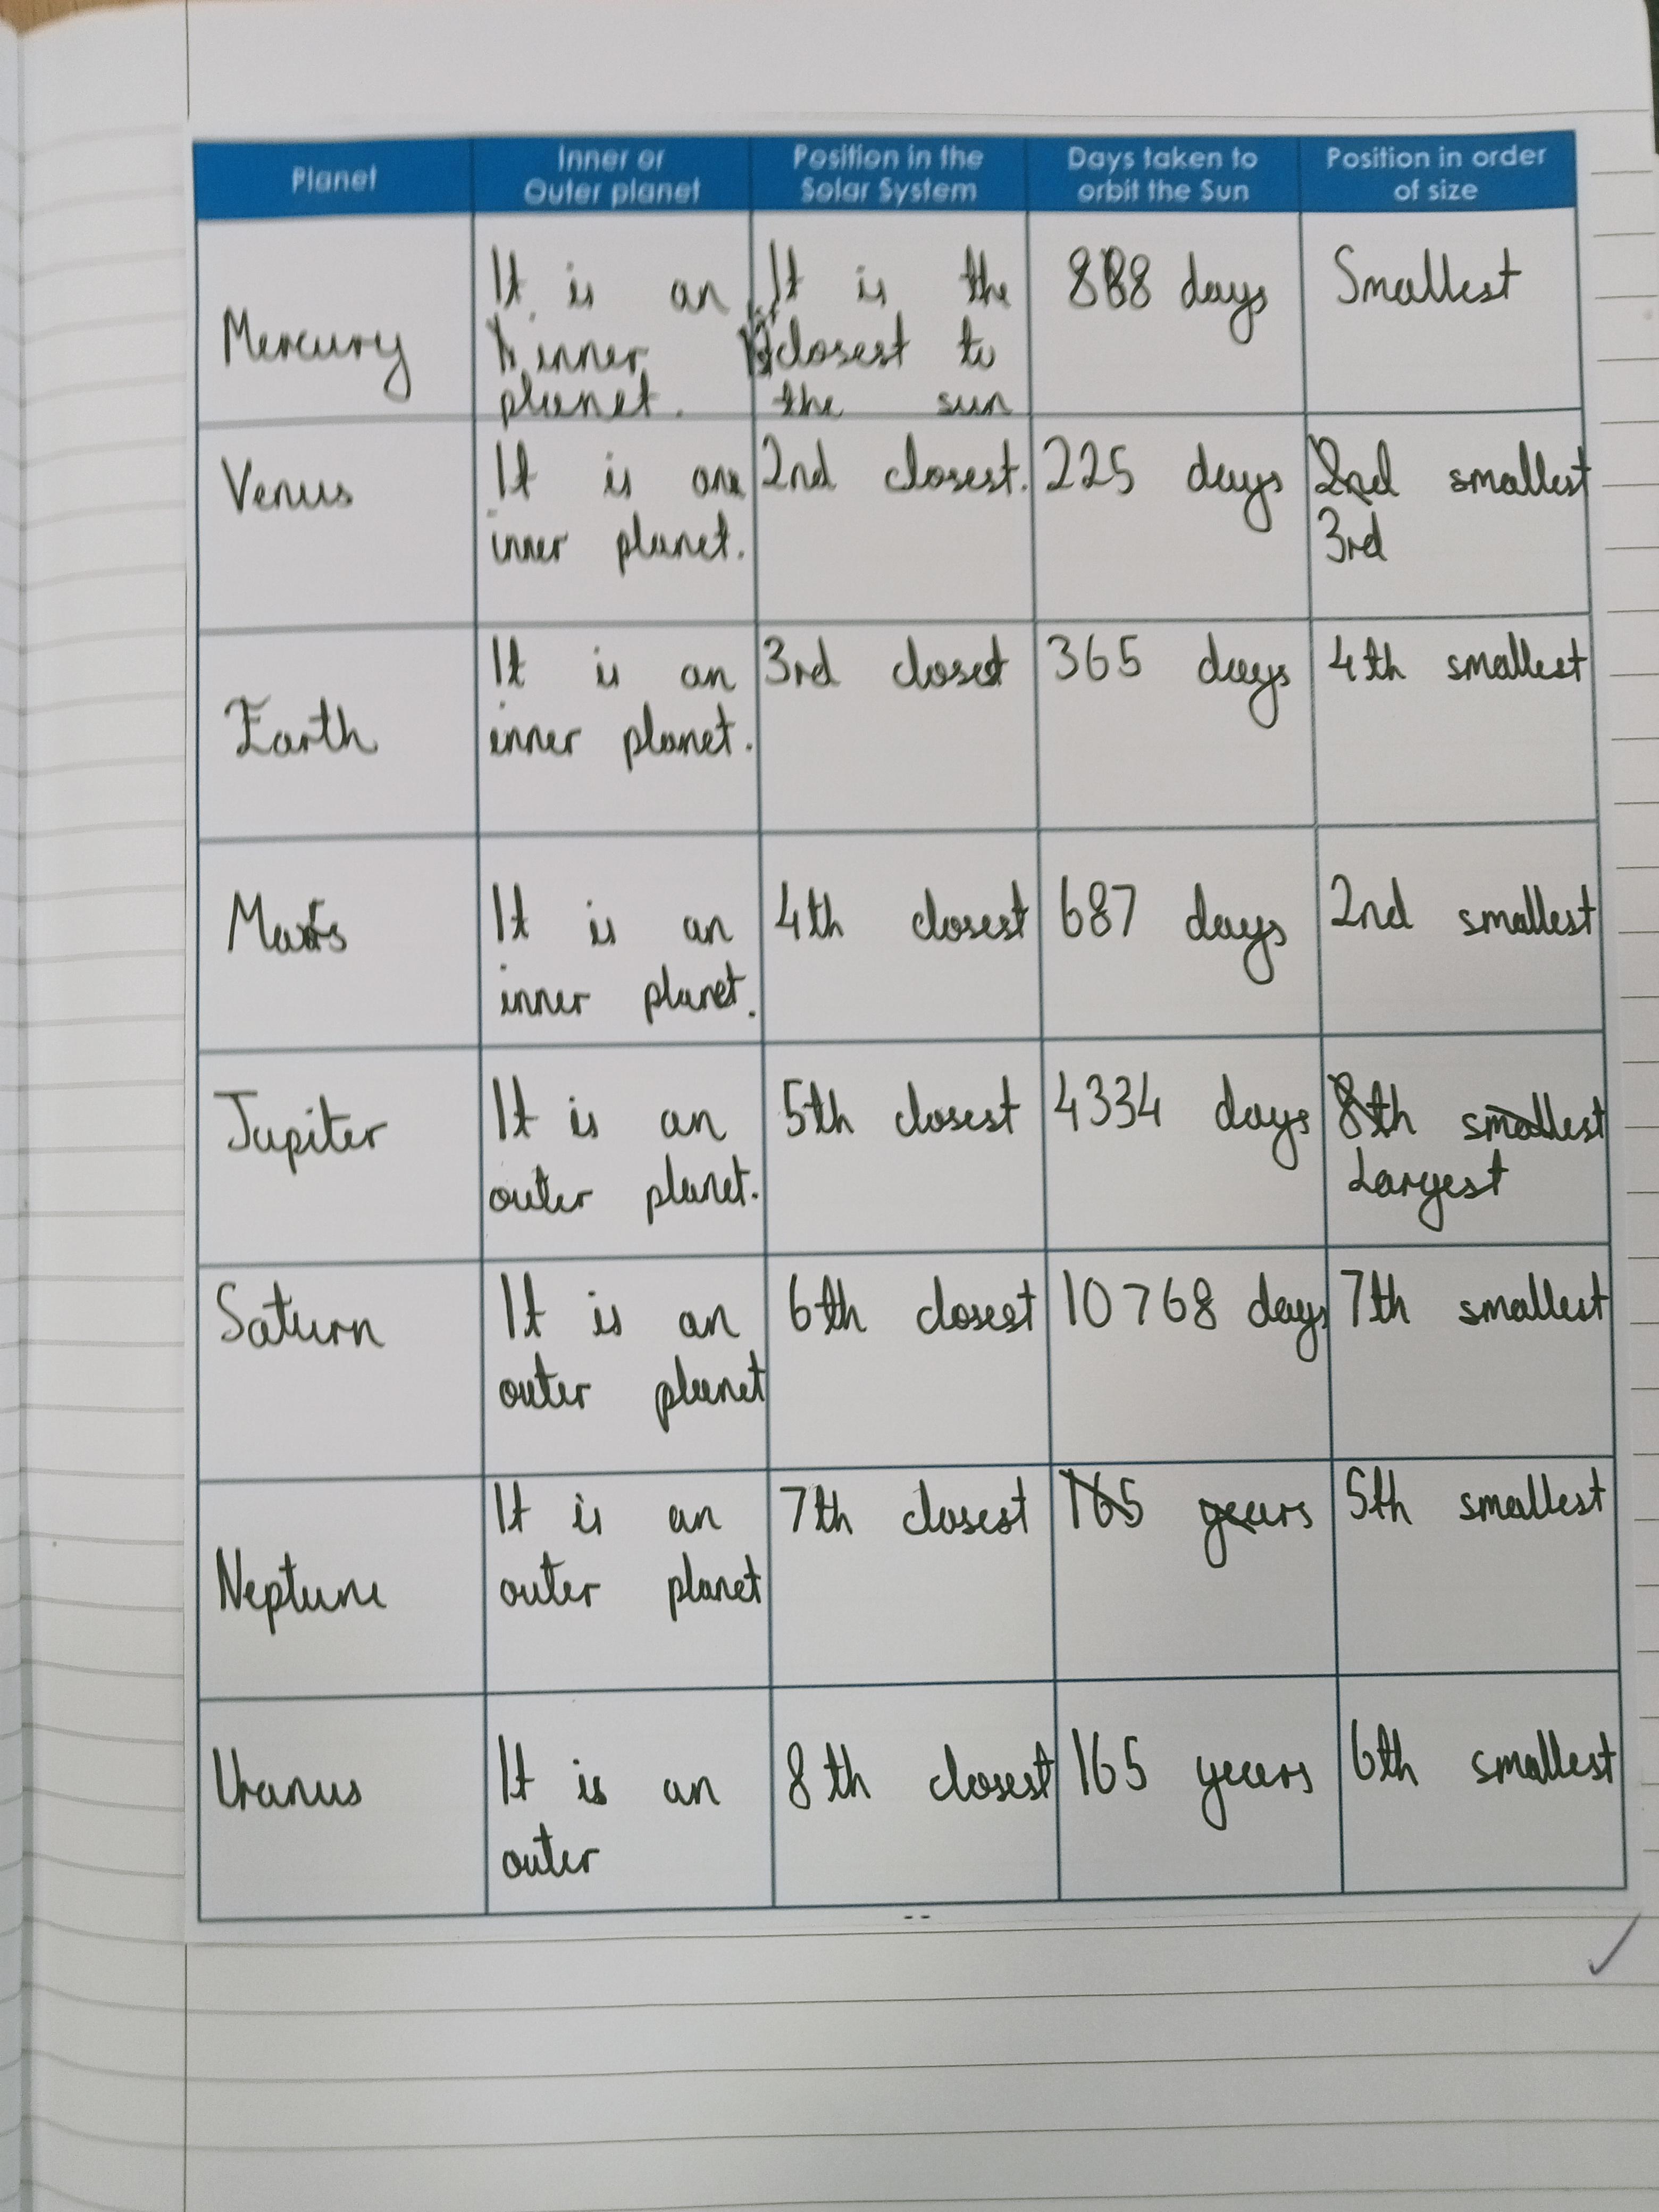 Planet
Inner or
Outer planet
Position in the
Solar System
Days taken to
orbit the Sun
Position in order
of size
Mercury
It is an
inner
planet.
It is the
closest to
the sun
88 days
Smallest
Venus
It is an
inner planet.
2nd closest.
225 days
2nd smallest
3rd
Earth
It is an
inner planet.
3rd closest
365 days
4th smallest
Mars
It is an
inner planet.
4th closest
687 days
2nd smallest
Jupiter
It is an
outer planet.
5th closest
4334 days
8th smallest
Largest
Saturn
It is an
outer planet
6th closest
10768 days
7th smallest
Neptune
It is an
outer planet
7th closest
165 years
5th smallest
Uranus
It is an
outer
8th closest
165 years
6th smallest